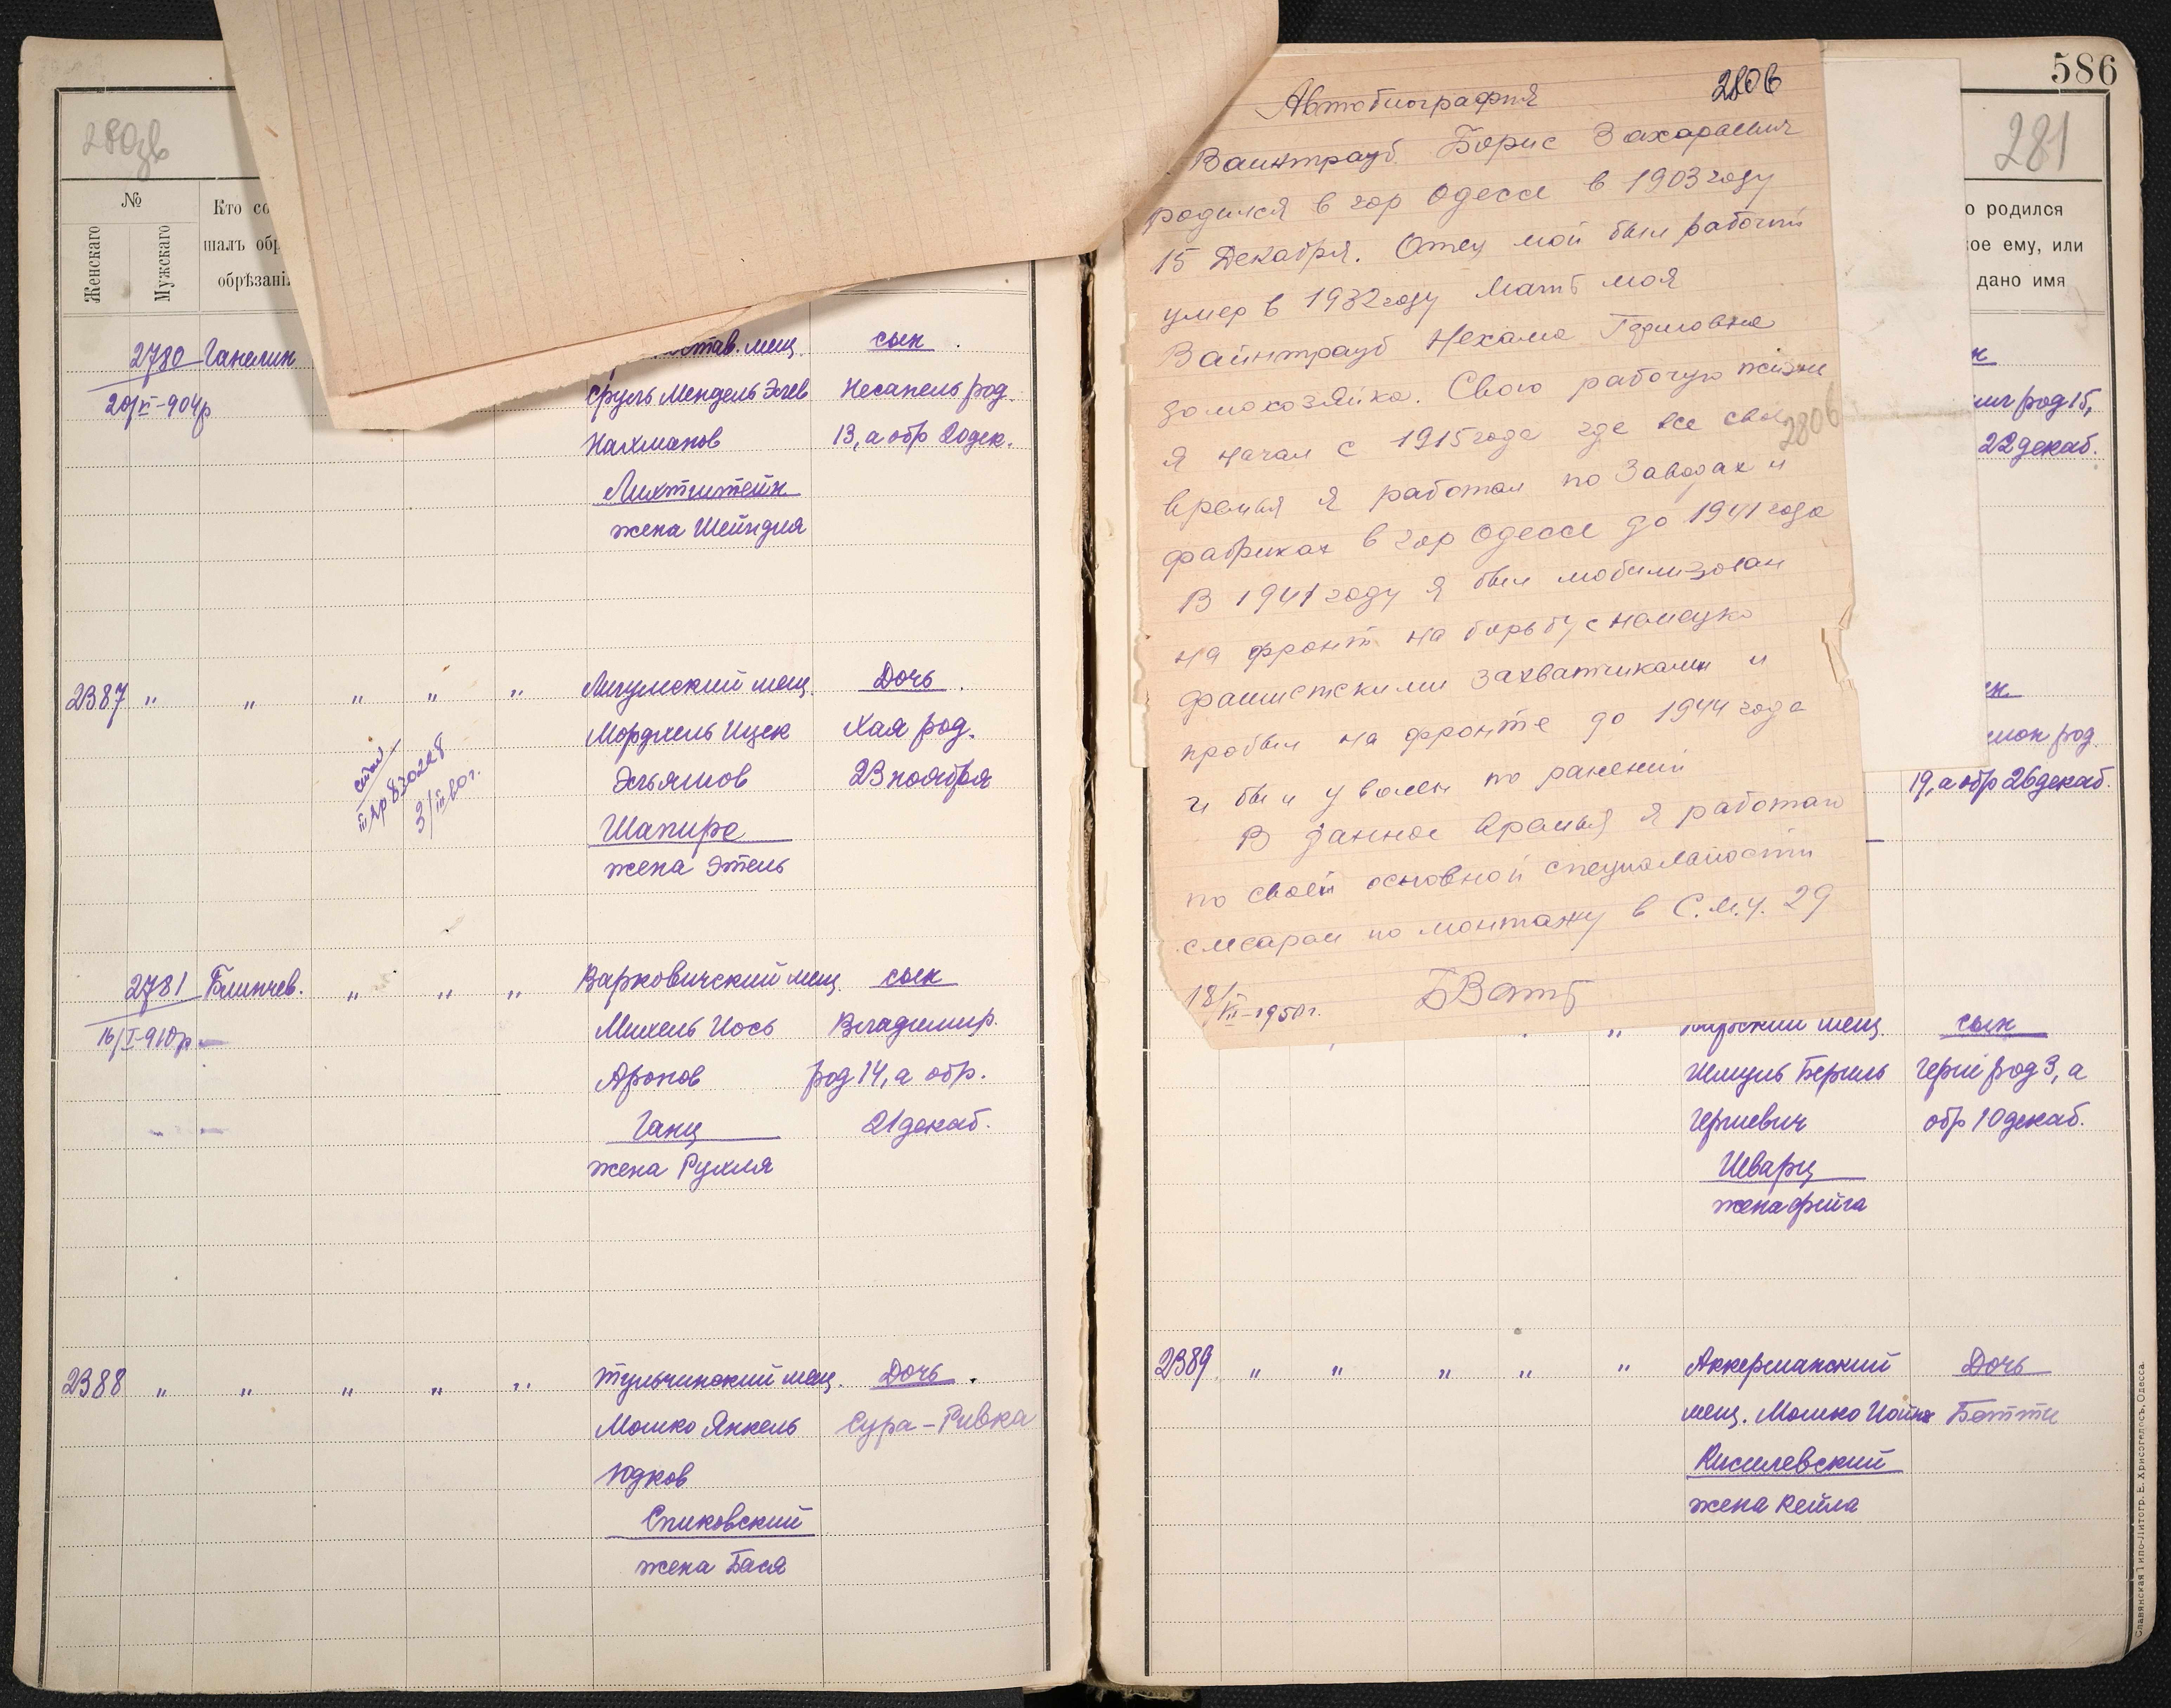 280зв
№
Женскаго
Мужскаго
Кто со
шалъ обр
обрѣзані
2780 Ганелин
20/XI-904р
став. мещ. сын
Сруль Мендель Эгев Несанель род.
Нахманов 13, а обр 20 дек.
Лихтштейн
жена Шейндля
2387 " " " " " мещ. Дочь
Мордхель Ицек Хая род.
Эльяшов 23 ноября
Шапиро
жена Этель
2781 Блинчев. " " " Варковичский мещ. сын
16/I-910р Михель Иось Владимир.
Аронов род 14, а обр.
Ганц 21 декаб.
жена Рухля
2388 " " " " " Тульчинский мещ. Дочь
Мошко Янкель Сура-Ривка
Юдков
Спиковский
жена Бася
586
281
о родился
ое ему, или
дано имя
Автобиография 280б
Ваинтрауб Борис Захарович
родился в гор Одессе в 1903 году
15 Декабря. Отец мой был рабочий
умер в 1932 году Мать моя
Вайнтрауб Нехама
домохозяйка. Свою рабочую жизнь
я начал с 1915 года где все свое
280б
время я работал по Заводах и
фабриках в гор Одессе до 1941 года
В 1941 году я был мобилизован
на фронт на борьбу с немецко
фашистскими захватчиками и
пробыл на фронте до 1944 года
и был уволен по ранений
В данное время я работаю
по своей основной специальности
слесарем по монтажу в С.М.У. 29
18/VII-1950г.
род 15,
22 декаб.
мон род.
19, а обр 26 декаб.
мещ. сын
Шмуль Берль Герш род 3, а
Гершевич обр 10 декаб.
Шварц
жена Фейга
2389 " " " " " Аккерманский Дочь
мещ. Мошко Иойна Бетти
Кисилевский
жена Кейла
Славянская Типо-Литогр. Е. Хрисогелосъ, Одесса.